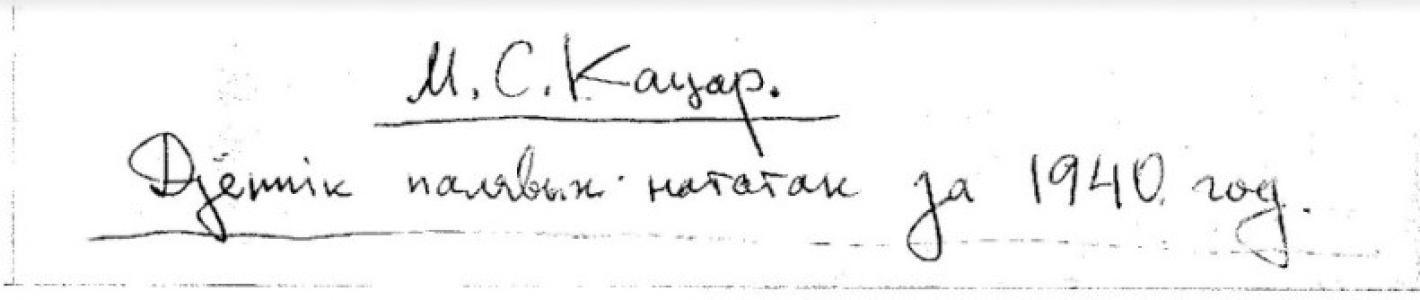 М. С. Кацар.
Дзённік палявых нататак за 1940 год.